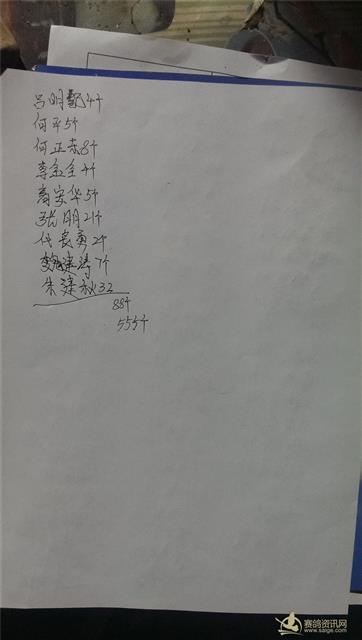 吕明毅4个
何平5个
何正春8个
李全全4个
高安华5个
张明21个
代长勇2个
魏建涛7个
朱建秋32
88个
555个
赛鸽资讯网
www.saige.com